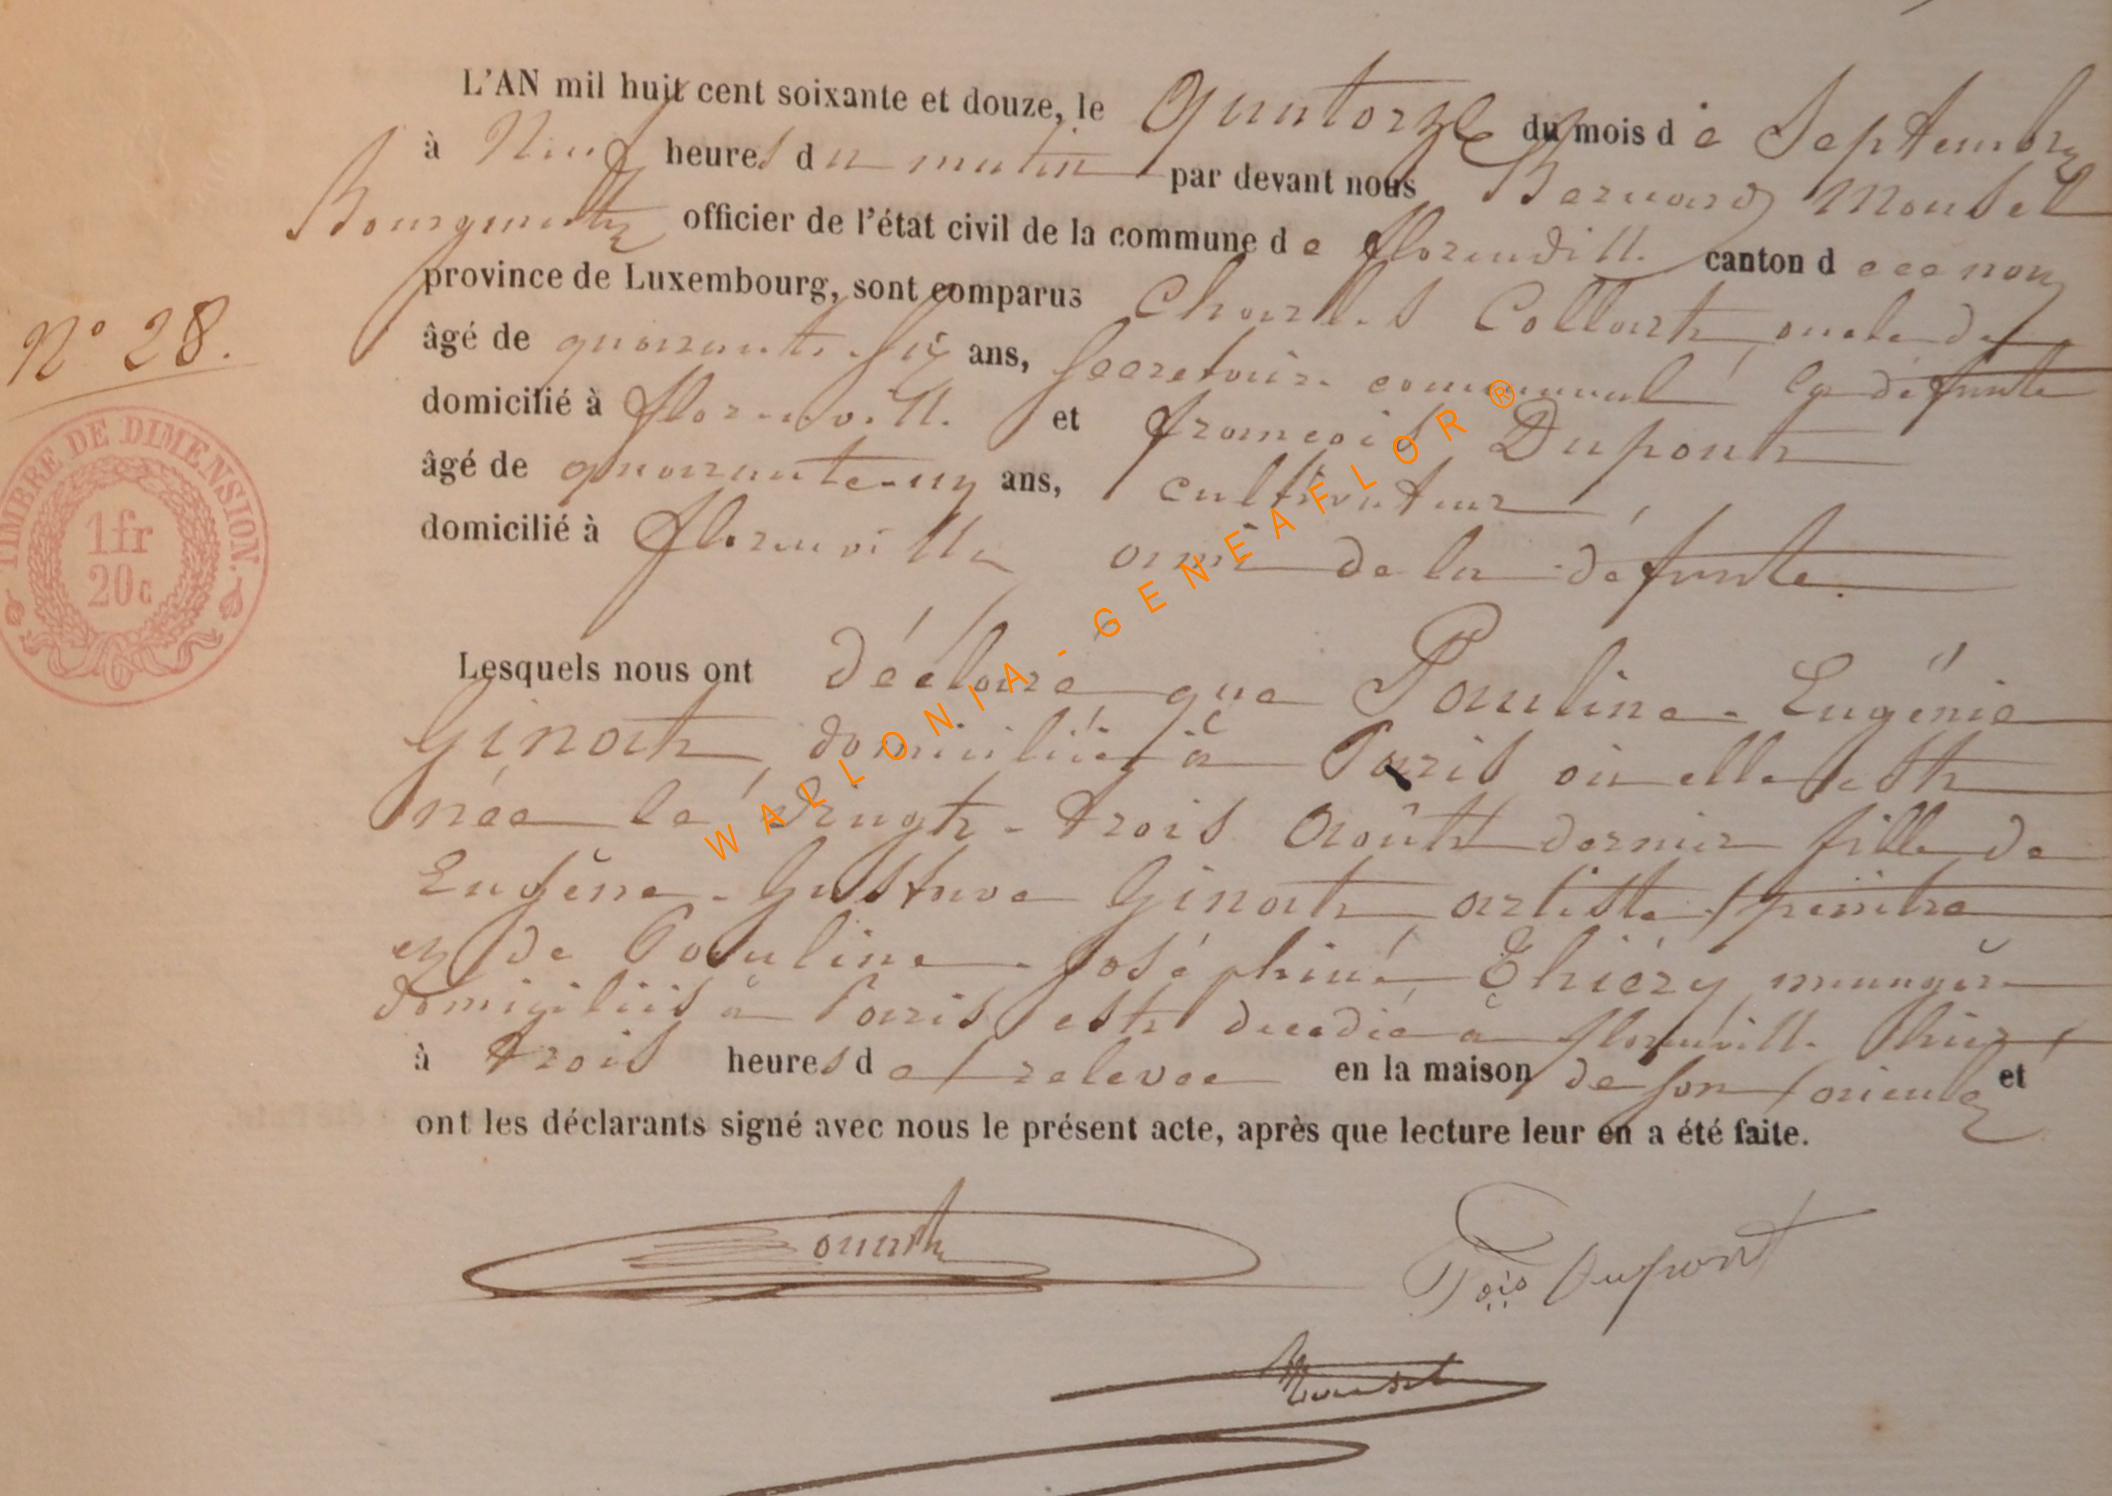 L'AN mil huit cent soixante et douze, le Quatorze du mois de Septembre
à Neuf heures du matin par devant nous Bernard Mousel
Bourgmestre officier de l'état civil de la commune de florenville canton de
province de Luxembourg, sont comparus Charles Collart, oncle de
âgé de quarante-six ans, secrétaire communal la défunte
domicilié à florenville et françois Dupont
âgé de quarante-un ans, cultivateur,
domicilié à florenville ami de la défunte.
Lesquels nous ont déclaré que Pauline-Eugénie
Ginoth, domiciliée à Paris où elle est
née le vingt-trois Août dernier fille de
Eugène-Gustave Ginoth, artiste peintre
et de Pauline-Joséphine Thiéry, ménagère
domiciliés à Paris est décédée à florenville hier
à trois heures de relevée en la maison de son et
ont les déclarants signé avec nous le présent acte, après que lecture leur en a été faite.
N° 28.
TIMBRE DE DIMENSION.
1fr
20c
WALLONIA-GENEAFLOR ®
fçois Dupont
Mousel